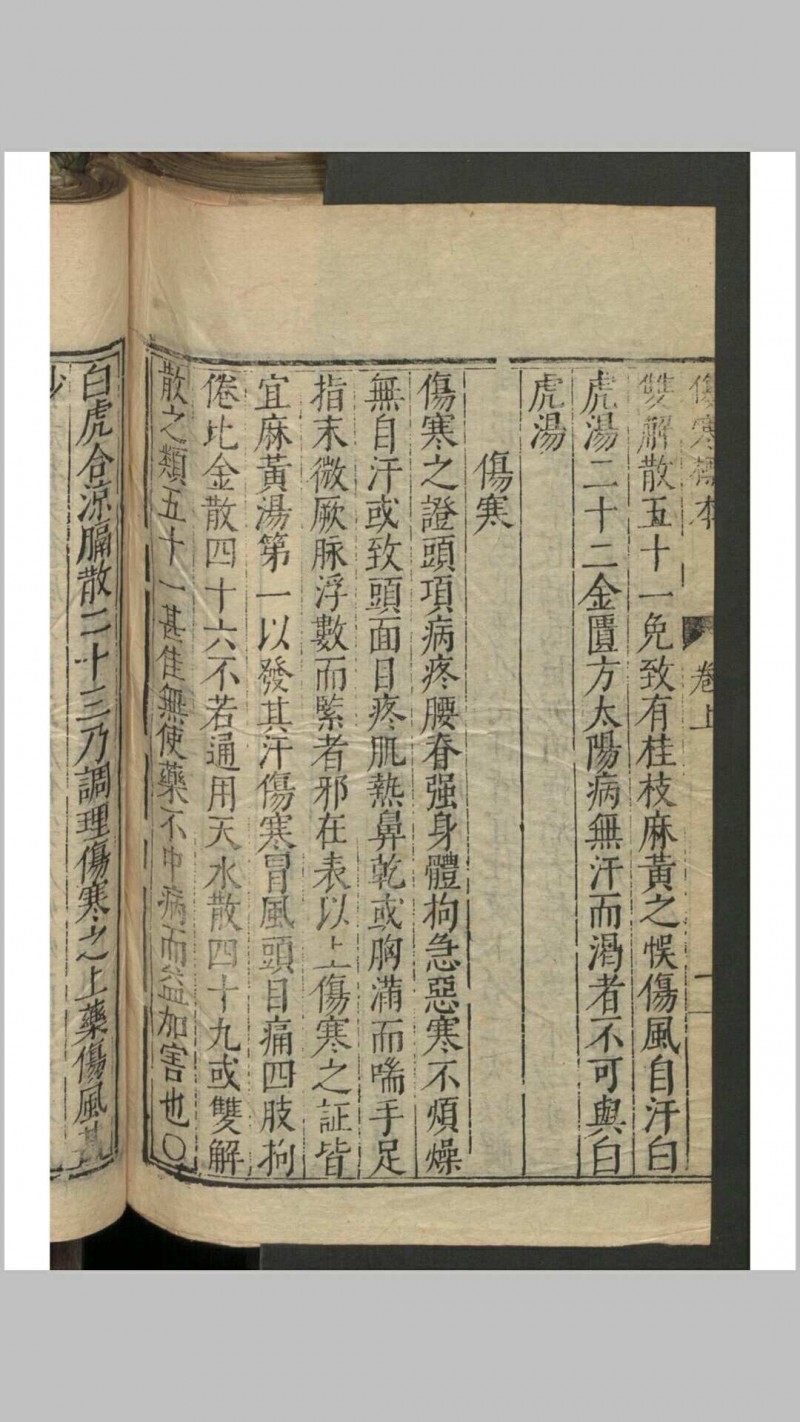 傷寒標本 卷上
雙解散五十一免致有桂枝麻黃之悞傷風自汗曰
虎湯二十二金匱方太陽病無汗而渴者不可與白
虎湯
傷寒
傷寒之證頭項病疼腰脊强身體拘急惡寒不煩燥
無自汗或致頭面目疼肌熱鼻乾或胸滿而喘手足
指末微厥脉浮數而緊者邪在表以上傷寒之証皆
宜麻黃湯第一以發其汗傷寒冒風頭目痛四肢拘
倦比金散四十六不若通用天水散四十九或雙解
散之類五十一甚佳無使藥不中病而益加害也〇
白虎合凉膈散二十三乃調理傷寒之上藥傷風甚
妙